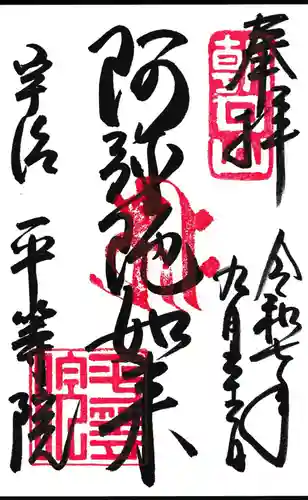 奉拝
朝日山
令和七年
九月 日
阿弥陀如来
宇治 平等院